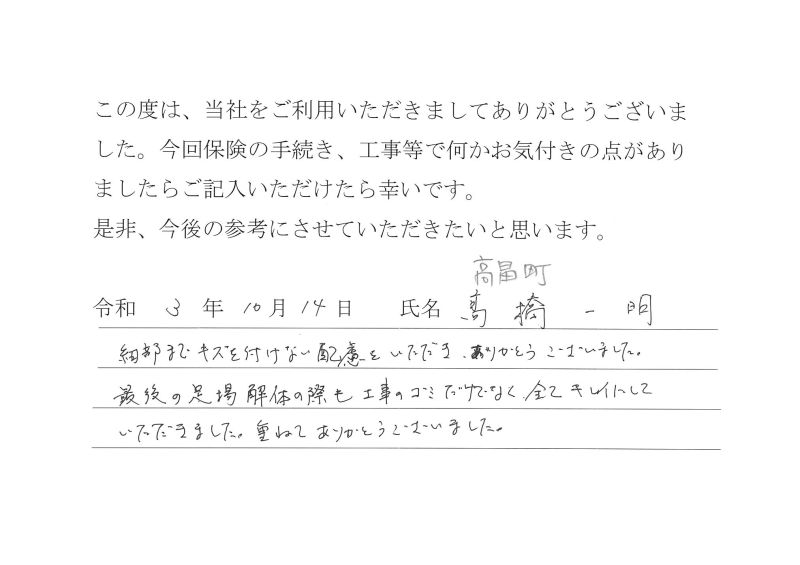 この度は、当社をご利用いただきましてありがとうございま
した。今回保険の手続き、工事等で何かお気付きの点があり
ましたらご記入いただけたら幸いです。
是非、今後の参考にさせていただきたいと思います。
高畠町
令和 3 年 10 月 14 日 氏名 髙橋 一明
細部までキズを付けない配慮をいただき、ありがとうございました。
最後の足場解体の際も工事のゴミだけでなく、全てキレイにして
いただきました。重ねてありがとうございました。